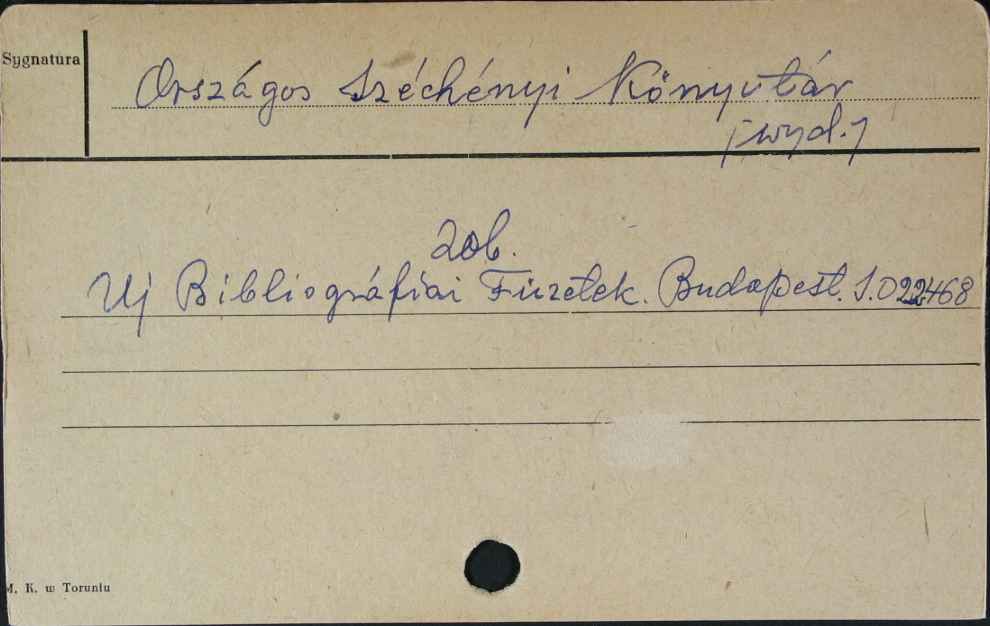 Sygnatura
Országos Széchényi Könyvtár
/wyd./
zob.
Uj Bibliográfiai Füzetek. Budapest. S.022468
M. K. w Toruniu